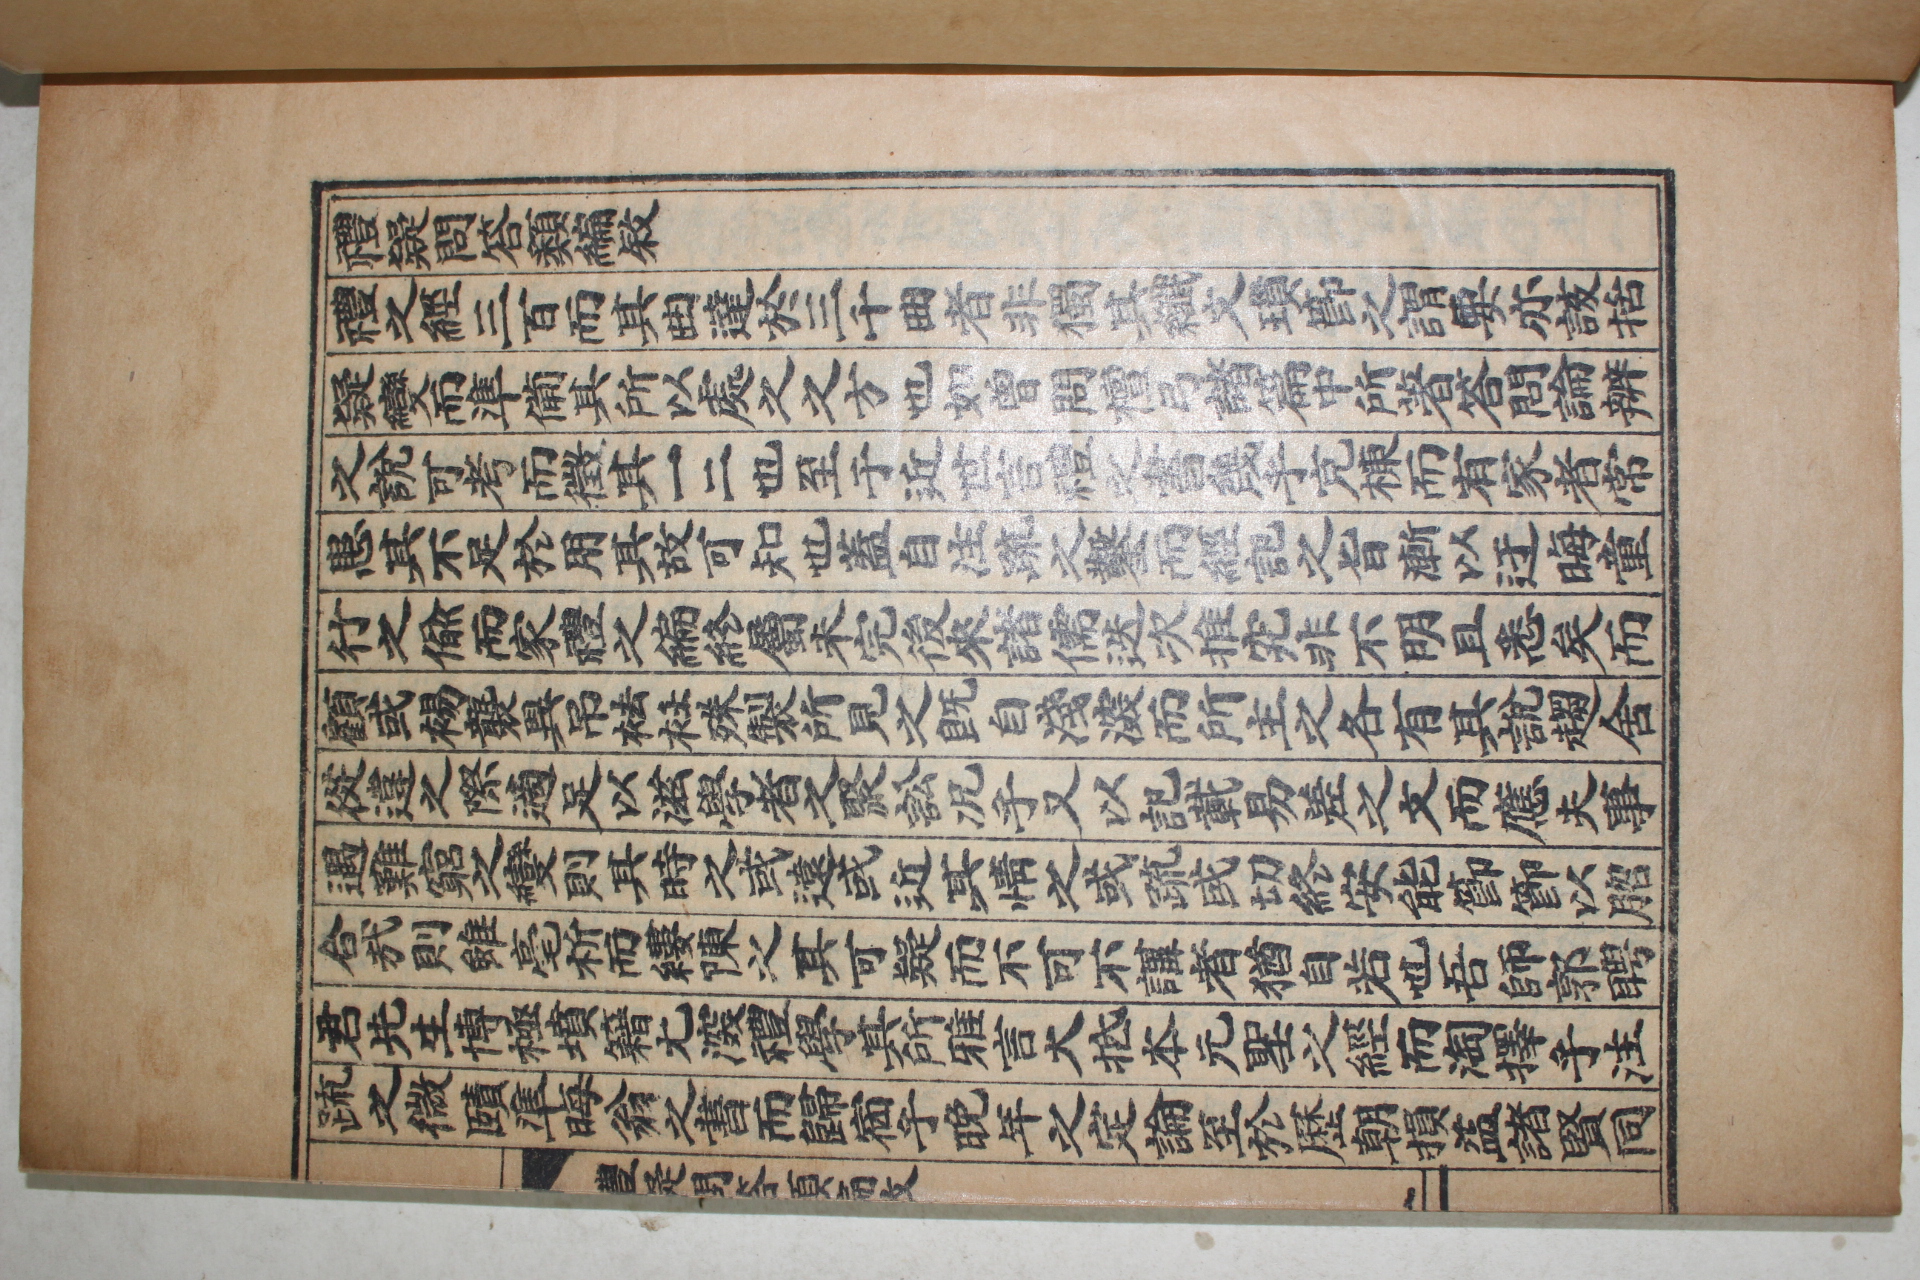 禮疑問答類編敍
禮之經三百而其曲達於三千曲者非獨其繁文瑣節之謂無亦該括
疑變而準備其所以處之之方也如曾問檀弓諸篇中所著答問論辨
之說可考而徵其一二也至于近世言禮之書幾乎充棟而有家者常
患其不足於用其故可知也蓋自注疏之鑿而經記之旨漸以迂晦童
行之偸而家禮之編終屬未完後來諸儒迭次推究非不明且悉矣而
顧或裼襲異吊袪衽殊製所見之旣自淺深而所主之各有其說趨舍
從違之際適足以滋學者之聚訟況乎又以記載易差之文而應夫事
遇難窮之變則其時之或遠或近其情之或疏或切終安能節節以脗
合哉則雖毫析而縷陳之其可疑而不可不講者猶自若也吾師郭聘
君先生博極墳籍尤深禮學其所雅言大抵本元聖之經而淘擇乎注
疏之微賾準晦翁之書而歸宿乎晚年之定論至於歷朝損益諸賢同
禮疑問答類編敍
一